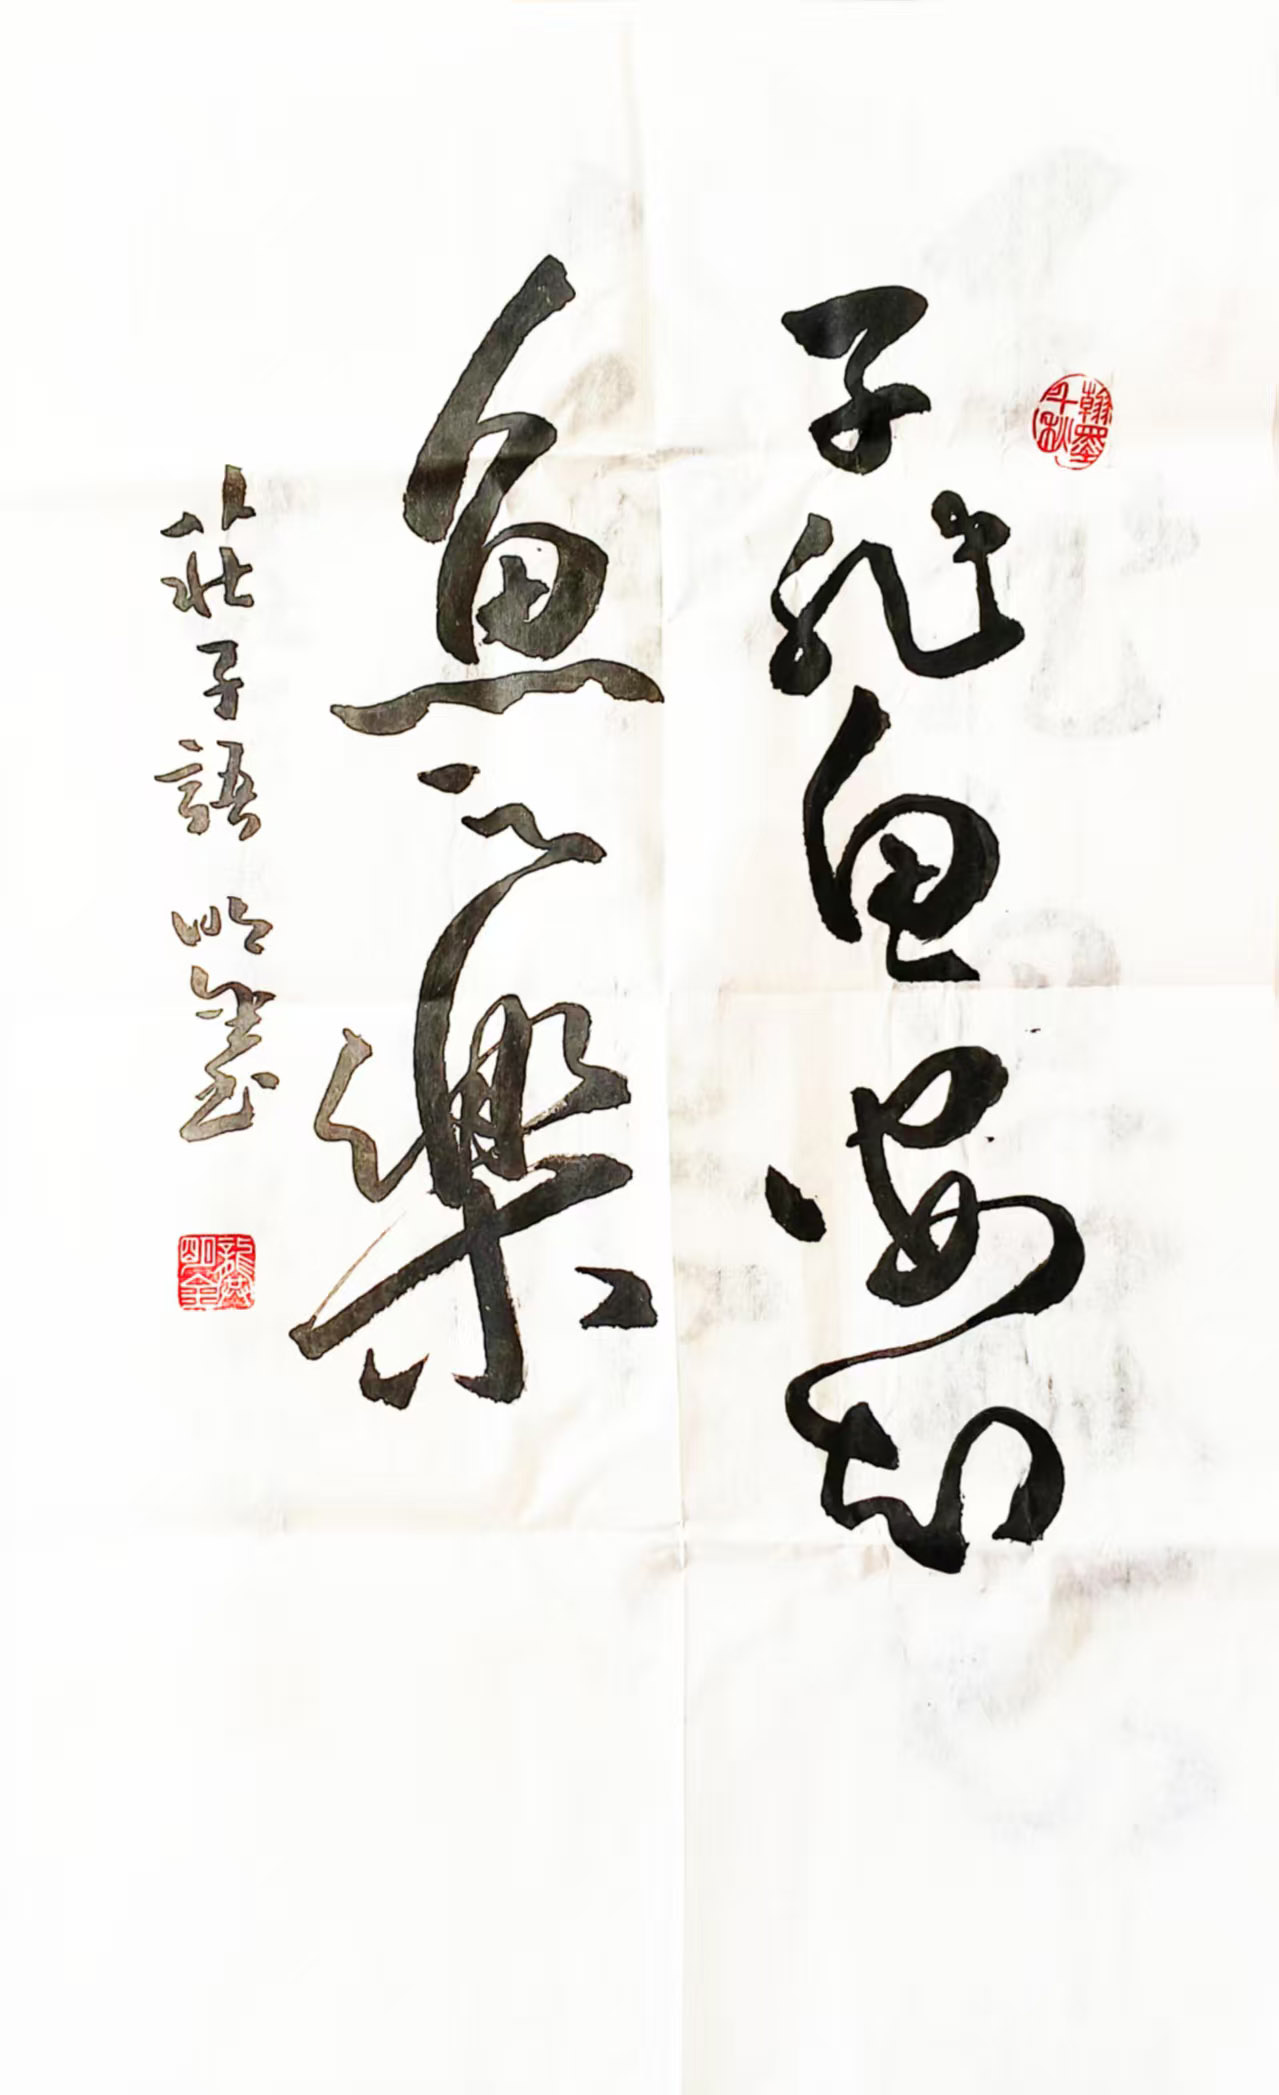 子非魚安知
魚之樂
莊子語 明
翰墨千秋